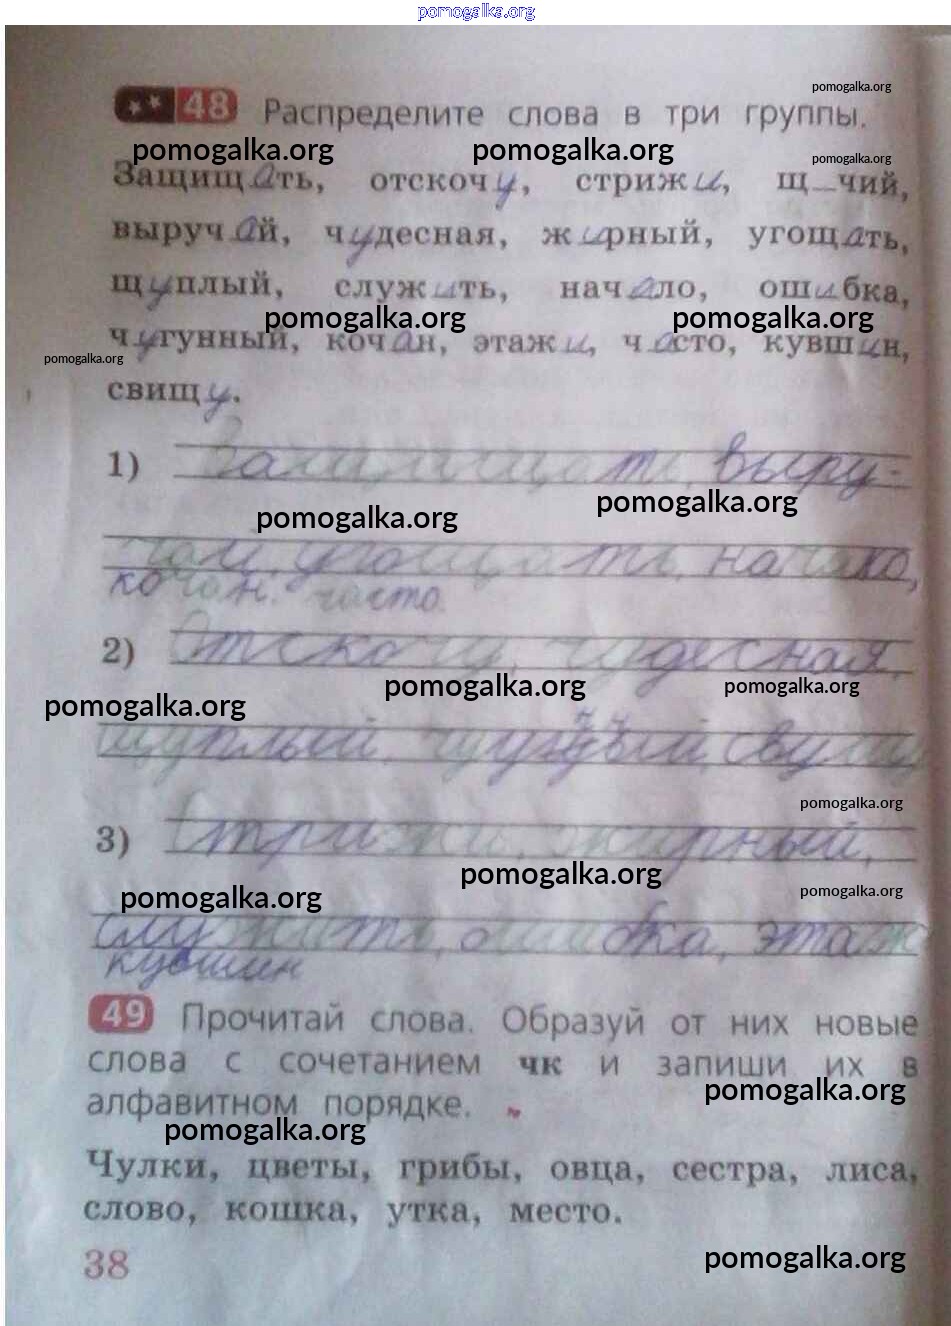 pomogalka.org
48 Распределите слова в три группы.
pomogalka.org
pomogalka.org pomogalka.org pomogalka.org
Защищать, отскочу, стрижи, щ_чий,
выручай, чудесная, жирный, угощать,
щуплый, служить, начало, ошибка,
pomogalka.org pomogalka.org
чугунный, кочан, этажи, часто, кувшин,
pomogalka.org
свищу.
1) Защищать, выру-
pomogalka.org pomogalka.org
чай, угощать, начало,
кочан. часто.
2) Отскочу, чудесная,
pomogalka.org pomogalka.org pomogalka.org
щуплый,
pomogalka.org
3) Стрижи, жирный,
pomogalka.org pomogalka.org
pomogalka.org
служить, ошибка, этаж
кувшин
49 Прочитай слова. Образуй от них новые
слова с сочетанием чк и запиши их в
pomogalka.org
алфавитном порядке.
pomogalka.org
Чулки, цветы, грибы, овца, сестра, лиса,
слово, кошка, утка, место.
38
pomogalka.org